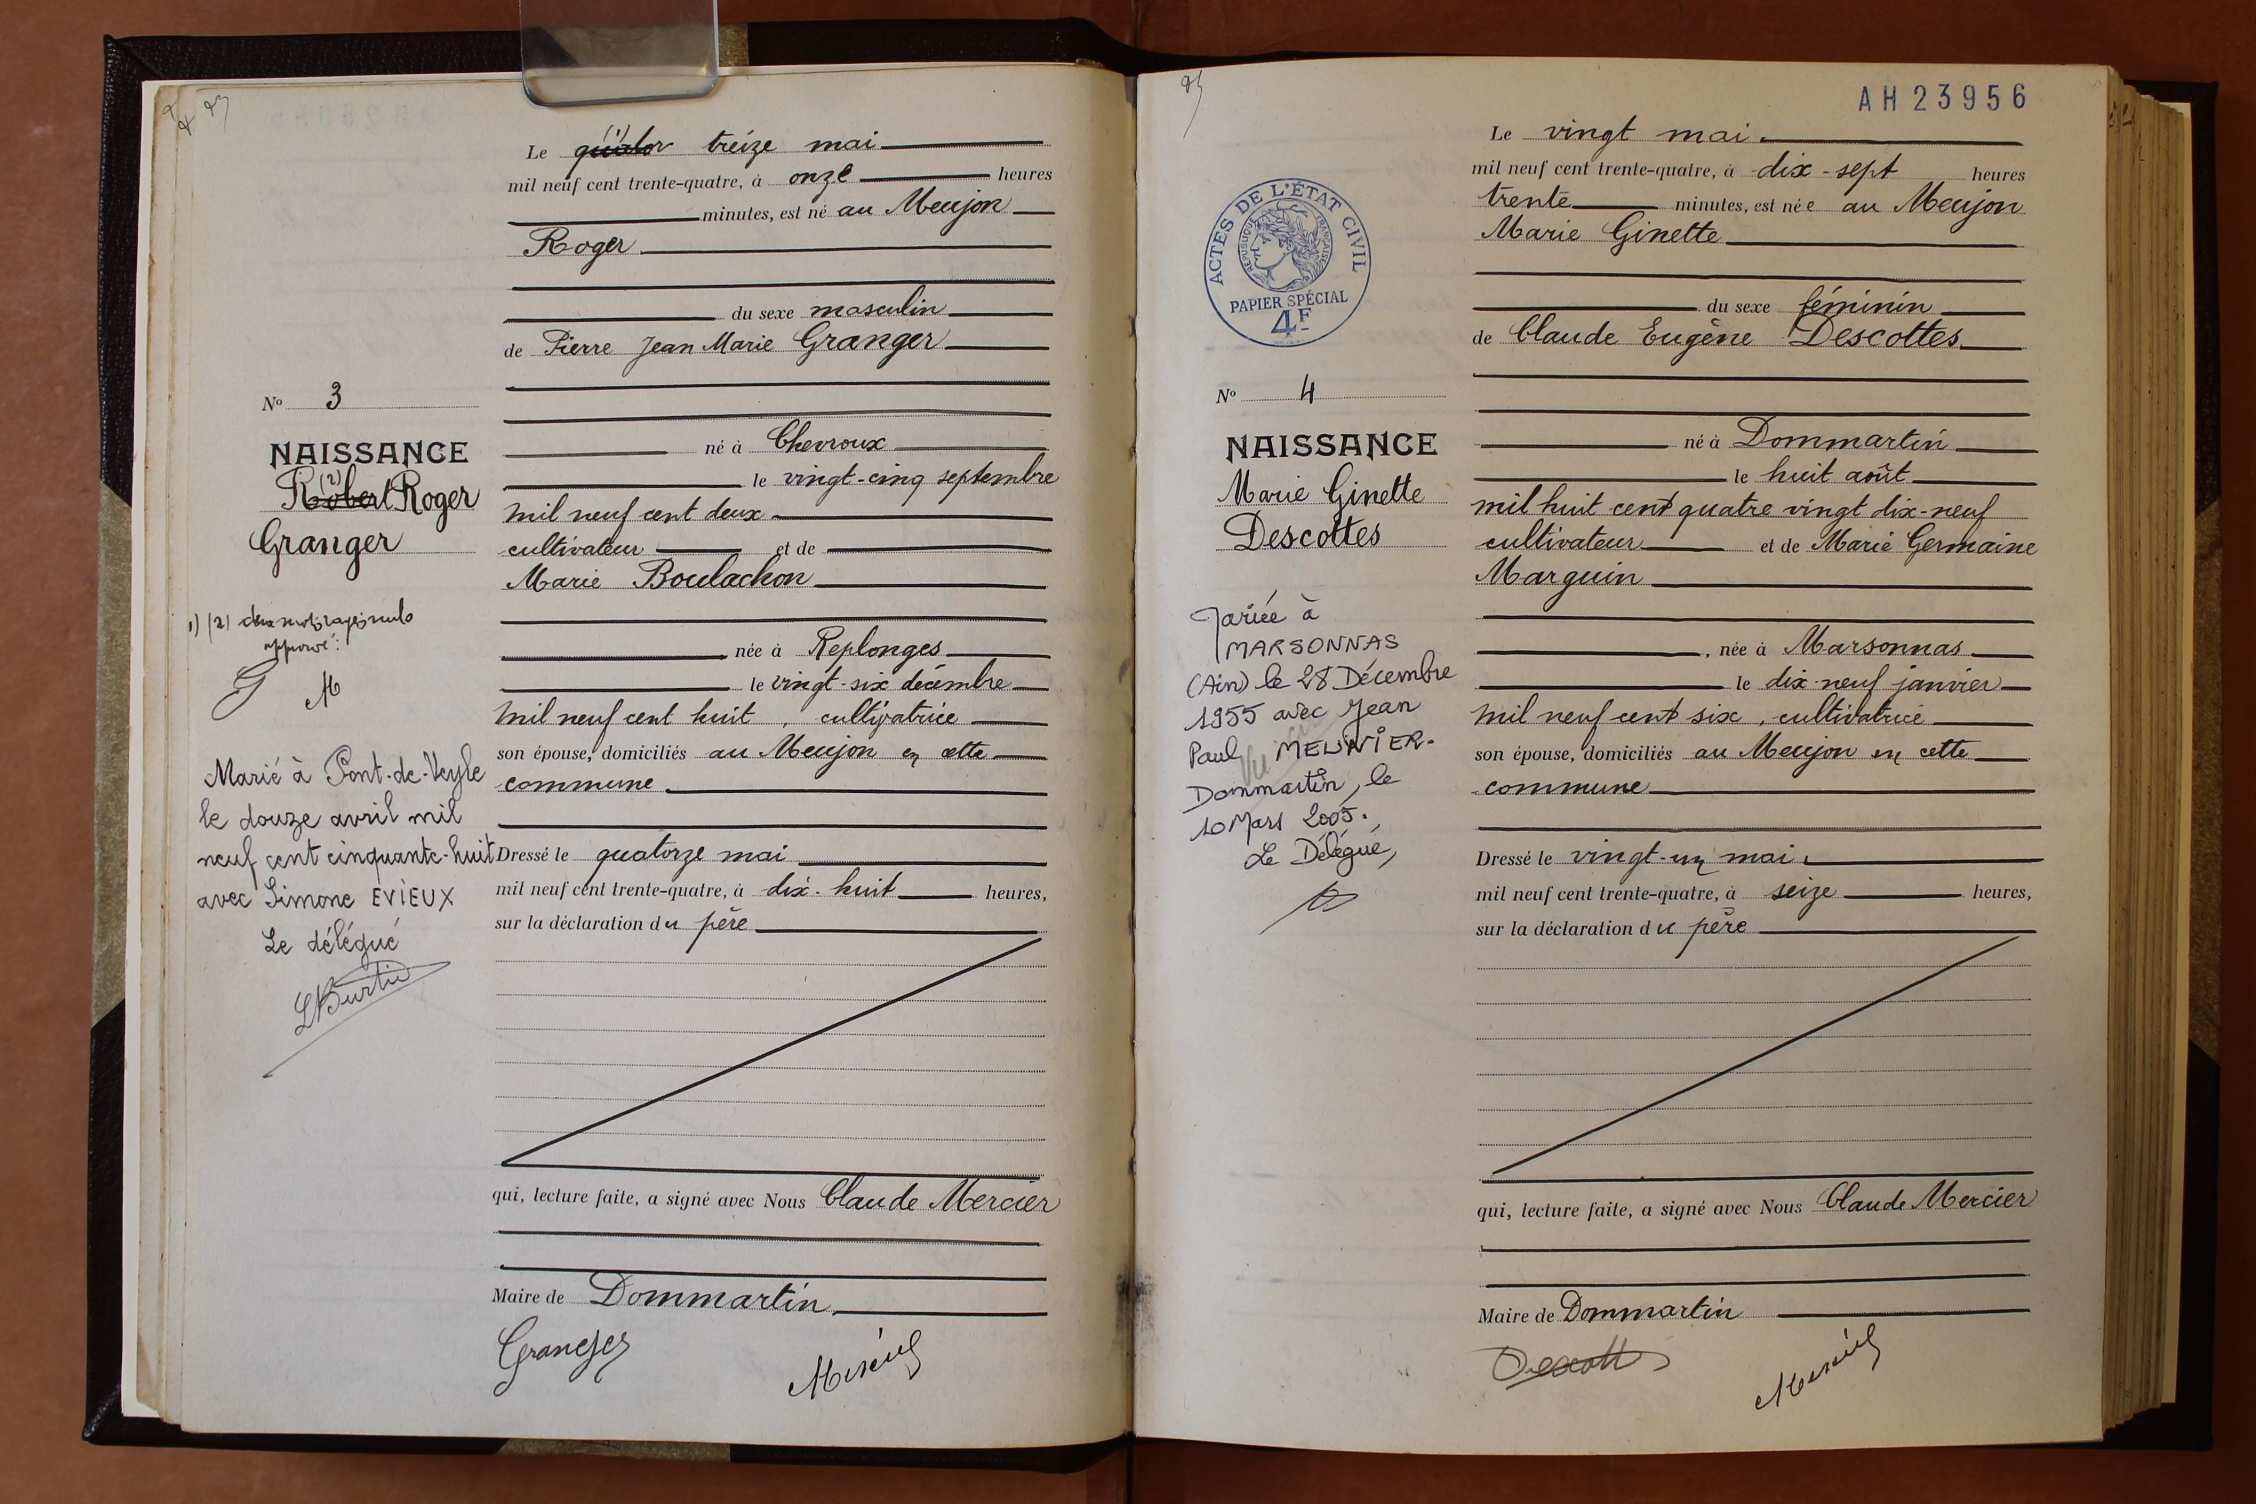 Le quator (1) treize mai
mil neuf cent trente-quatre, à onze heures
minutes, est né au Meujon
Roger
du sexe masculin
de Pierre Jean Marie Granger
né à Chevroux
le vingt-cinq septembre
mil neuf cent deux
cultivateur et de
Marie Boulachon
née à Replonges
le vingt-six décembre
mil neuf cent huit, cultivatrice
son épouse, domiciliés au Meujon en cette
commune
Dressé le quatorze mai
mil neuf cent trente-quatre, à dix-huit heures,
sur la déclaration du père
qui, lecture faite, a signé avec Nous Claude Mercier
Maire de Dommartin
Granger
Mercier
No 3
NAISSANCE
Robert (2) Roger
Granger
1) (2) deux mots rayés nuls
approuvé :
G M
Marié à Pont-de-Veyle
le douze avril mil
neuf cent cinquante-huit
avec Simone EVIEUX
Le délégué
AH23956
Le vingt mai
mil neuf cent trente-quatre, à dix-sept heures
trente minutes, est née au Meujon
Marie Ginette
du sexe féminin
de Claude Eugène Descottes
né à Dommartin
le huit août
mil huit cent quatre vingt dix-neuf
cultivateur et de Marie Germaine
Marguin
, née à Marsonnas
le dix-neuf janvier
mil neuf cent six, cultivatrice
son épouse, domiciliés au Meujon en cette
commune
Dressé le vingt-un mai
mil neuf cent trente-quatre, à seize heures,
sur la déclaration du père
qui, lecture faite, a signé avec Nous Claude Mercier
Maire de Dommartin
Descottes
Mercier
ACTES DE L'ÉTAT CIVIL
RÉPUBLIQUE FRANÇAISE
PAPIER SPÉCIAL
4F
No 4
NAISSANCE
Marie Ginette
Descottes
Mariée à
MARSONNAS
(Ain) le 28 Décembre
1955 avec Jean
Paul MEUNIER.
Dommartin, le
10 Mars 2005.
Le Délégué,